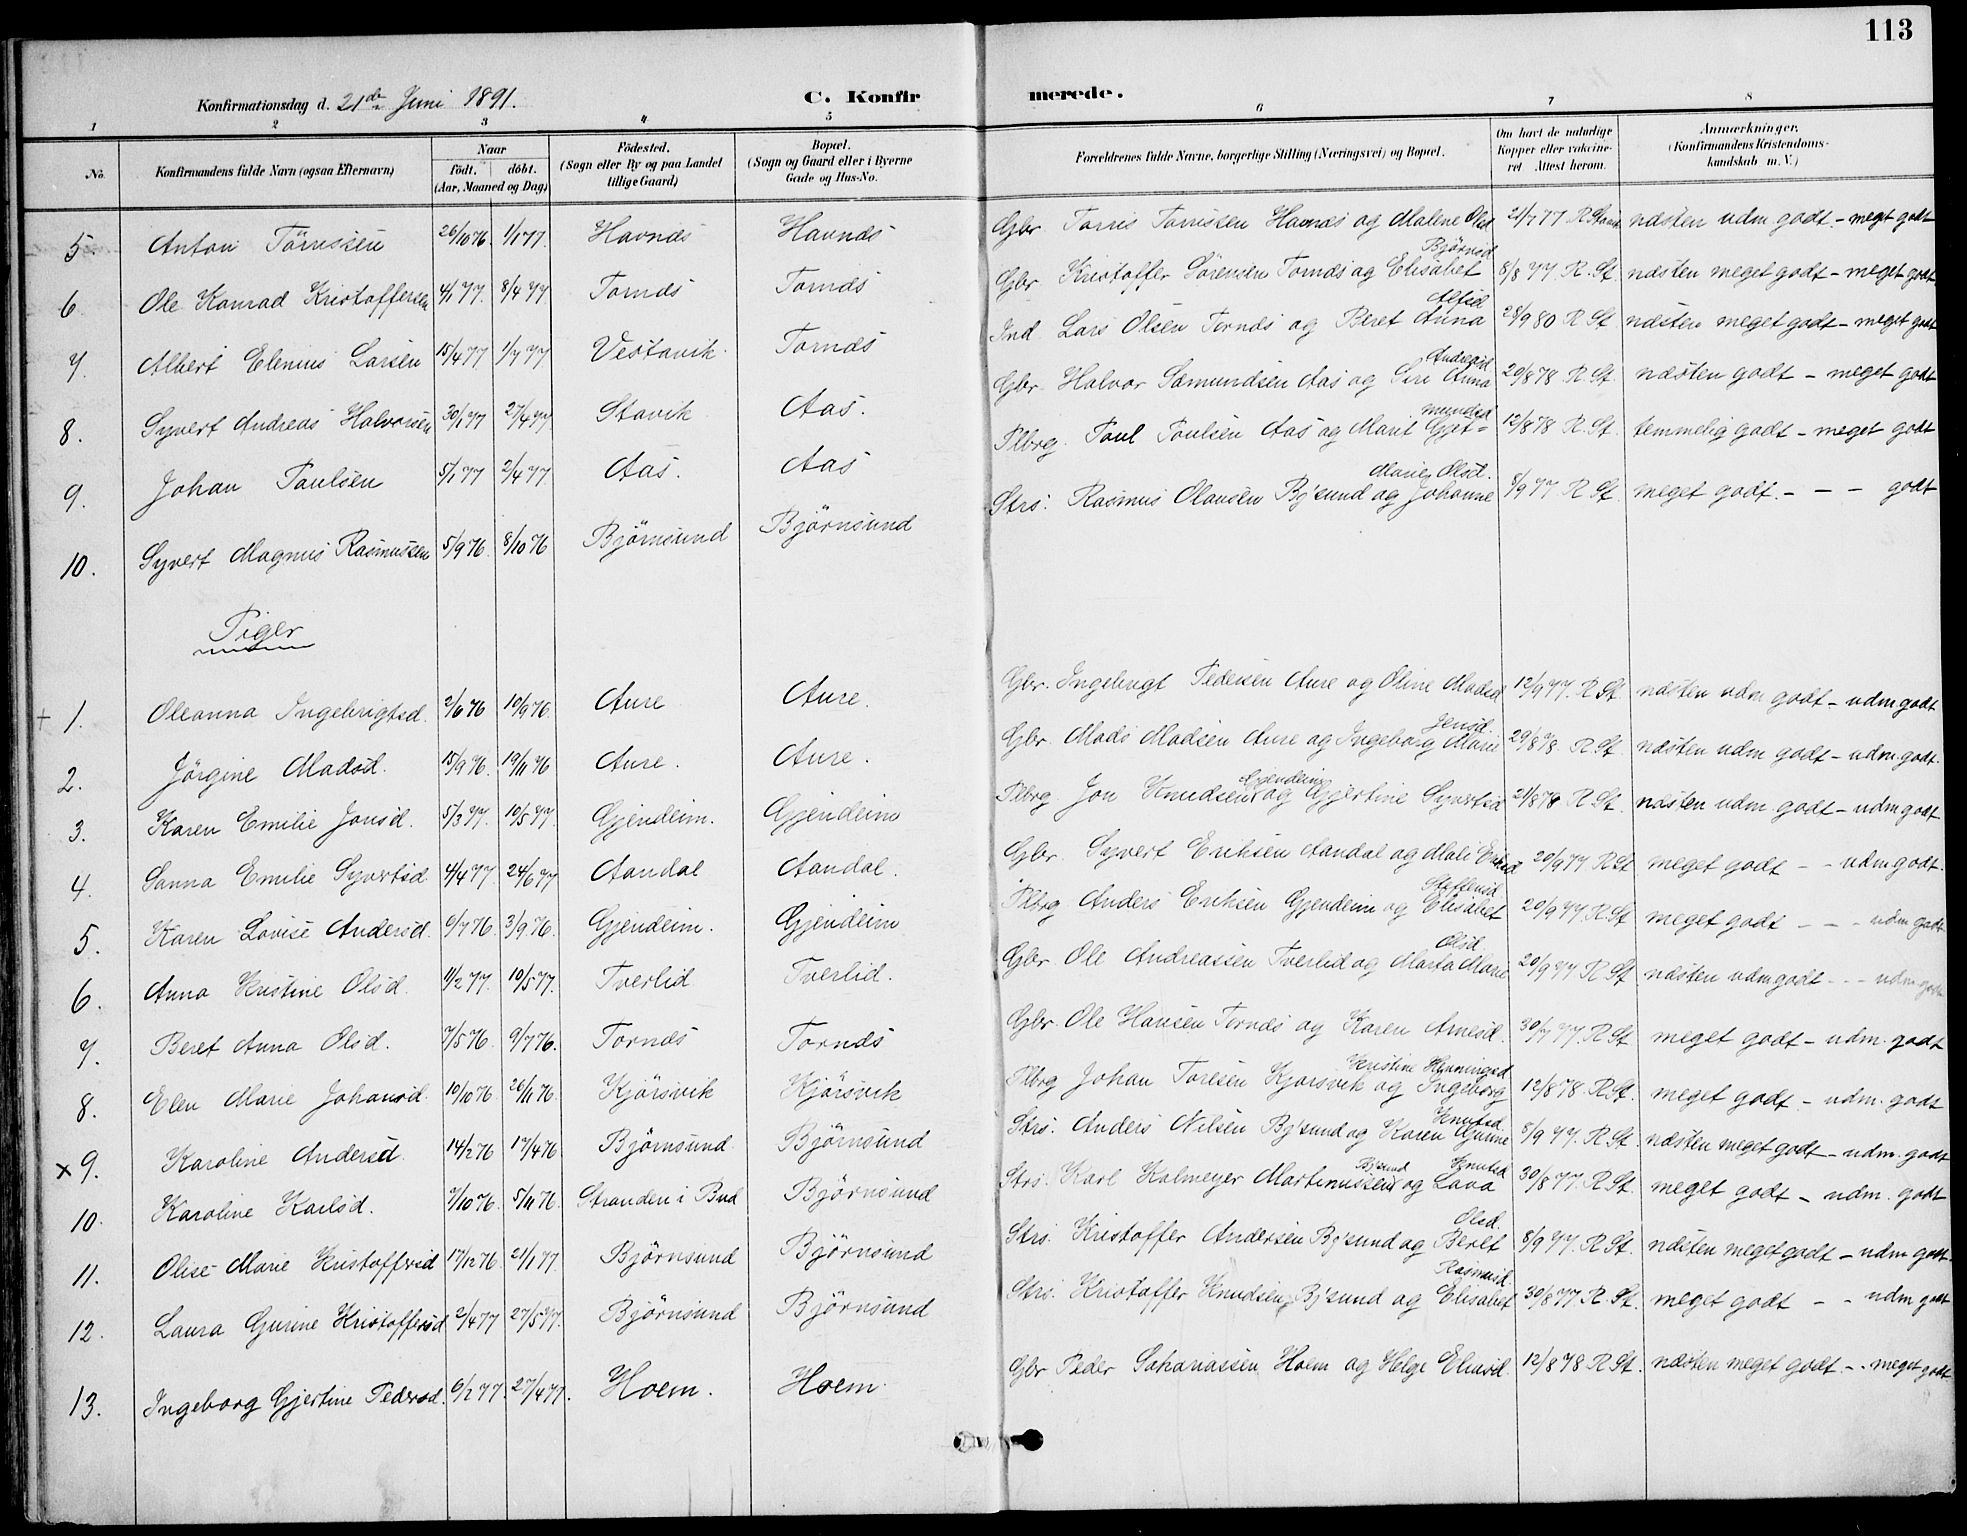 113
Konfirmationsdag d. 21de Juni 1891. C. Konfirmerede.
1 2 3 4 5 6 7 8
No. Konfirmandens fulde Navn (ogsaa Efternavn) Naar født. døbt. (Aar, Maaned og Dag) Födested. (Sogn eller By og paa Landet tillige Gaard) Bopæl. (Sogn og Gaard eller i Byerne Gade og Hus-No. Forældrenes fulde Navne, borgerlige Stilling (Næringsvei) og Bopæl. Om havt de naturlige Kopper eller vakcineret. Attest herom. Anmærkninger. (Konfirmandens Kristendomskundskab m. V.)
5. Anton Törrissen 26/10 76 1/1 77 Havnæs Havnæs Gbr Torris Torrissen Havnæs og Malene Olsd 21/7 77 R. næsten udm godt - meget godt
6. Ole Konrad Kristoffersen 4/1 77. 8/4 77 Tornæs Tornæs Gbr Kristoffer Sörensen Tornæs og Elisabet Björnsd 8/8 77 R. St. næsten meget godt - meget godt
7. Albert Elenius Larsen 15/4 77 1/7 77 Vestavik. Tornæs Ind. Lars Olsen Tornæs og Beret Anna Alfsd 28/9 80 R St. næsten meget godt - meget godt
8. Syvert Andreas Halvorsen 30/1 77 27/4 77 Stavik Aas. Gbr. Halvor Sæmundsen Aas og Siri Anna Andreasd 20/8 78 R. St. næsten godt - meget godt
9. Johan Paulsen 5/1 77 2/4 77 Aas. Aas Plbrg. Paul Paulsen Aas og Marit Gjet=mundsd 12/8 78 R. St. temmelig godt - meget godt
10. Syvert Magnus Rasmussen 5/9 76. 8/10 76 Björnsund Björnsund Strs: Rasmus Olausen Bj'sund og Johanne Marie Olsd. 8/9 77 R St. meget godt. - - - godt
Piger
+ 1. Oleanna Ingebrigtsd. 2/6 76 10/9 76 Aure Aure. Gbr. Ingebrigt Pedersen Aure og Oline Madsd 12/9 77. R St. næsten udm godt - udm godt
2. Jörgine Madsd. 15/9 76. 19/11 76 Aure. Aure. Gbr. Mads Madsen Aure og Ingeborg Marie Jensd. 20/8 78. R St. næsten udm godt - udm. godt.
3. Karen Emilie Jonsd. 5/3 77. 10/5 77. Gjendeim. Gjendeim Plbrg Jon Knudsen Gjendeim og Gjertine Syvertsd 21/8 78 R St. næsten udm. godt - udm godt
4. Sanna Emilie Syvertsd. 4/4 77. 24/6 77 Aandal Aandal. Gbr. Syvert Eriksen Aandal og Mali Eriksd 20/9 77 R St meget godt - - udm godt.
5. Karen Lovise Andersd. 6/7 76. 3/9 76. Gjendeim. Gjendeim Plbrg Anders Eriksen Gjendeim og Elisabet Steffensd 20/9 77 R St. meget godt - - - udm godt
6. Anna Kristine Olsd. 11/2 77. 10/5 77. Tverlid Tverlid. Gbr Ole Andreassen Tverlid og Marta Marie Olsd. 20/9 77 R St næsten udm godt - - - udm godt
7. Beret Anna Olsd. 7/5 76. 9/7 76. Tornæs Tornæs Gbr. Ole Hansen Tornæs og Karen Arnesd. 30/7 77. R St meget godt - udm. godt
8. Elen Marie Johansd. 10/10 76. 26/11 76. Kjörsvik Kjörsvik Plbrg Johan Toresen Kjorsvik og Ingeborg Kristine Henningsd 12/8 78. R St. meget godt - udm. godt
x 9. Karoline Andersd. 14/2 76 17/4 76 Björnsund Björnsund Strs. Anders Nilsen Bj'sund og Karen Gurine Knutsd. 8/9 77. R. St. næsten meget godt - udm. godt
10. Karoline Karlsd. 7/10 76. 5/11 76. Stranden i Bud Björnsund Strs. Karl Kolmeyer Martinussen Bj'sund og Lava Knutsd 30/8 77. R St. meget godt - udm. godt
11. Olise Marie Kristoffersd 17/12 76. 21/1 77. Björnsund Björnsund Strs. Kristoffer Andersen Bj'sund og Beret Olsd. 8/9 77. R St. næsten meget godt - udm godt.
12. Laura Gurine Kristoffersd 2/4 77 27/5 77. Björnsund Björnsund Strs. Kristoffer Knudsen, Bj'sund og Elisabet Rasmusd. 30/8 77 R. St. meget godt - - udm godt
13. Ingeborg Gjertine Pedersd. 6/2 77. 27/4 77. Hoem. Hoem. Gbr Peder Sakariassen Hoem og Helge Eliasd. 12/8 78 R St. næsten meget godt - . meget godt